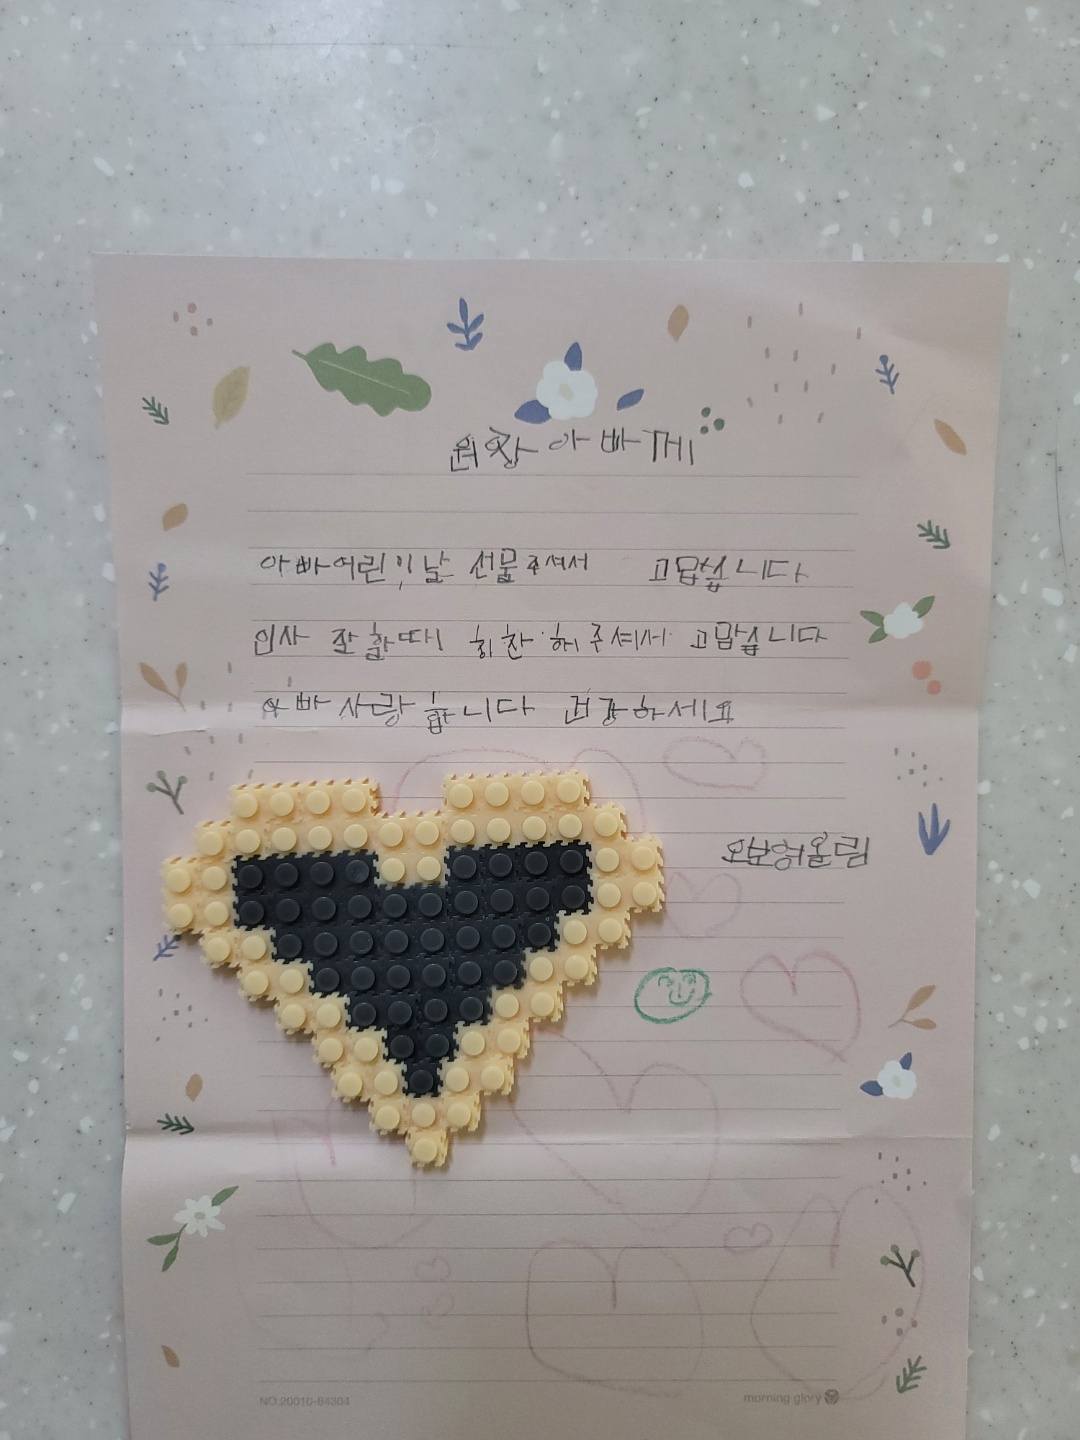 원장아빠께
아빠어린이날 선물주셔서 고맙습니다
인사 잘할때 칭찬해주셔서 고맙습니다
아빠사랑합니다 건강하세요
올림
NO.20010-84304
morning glory